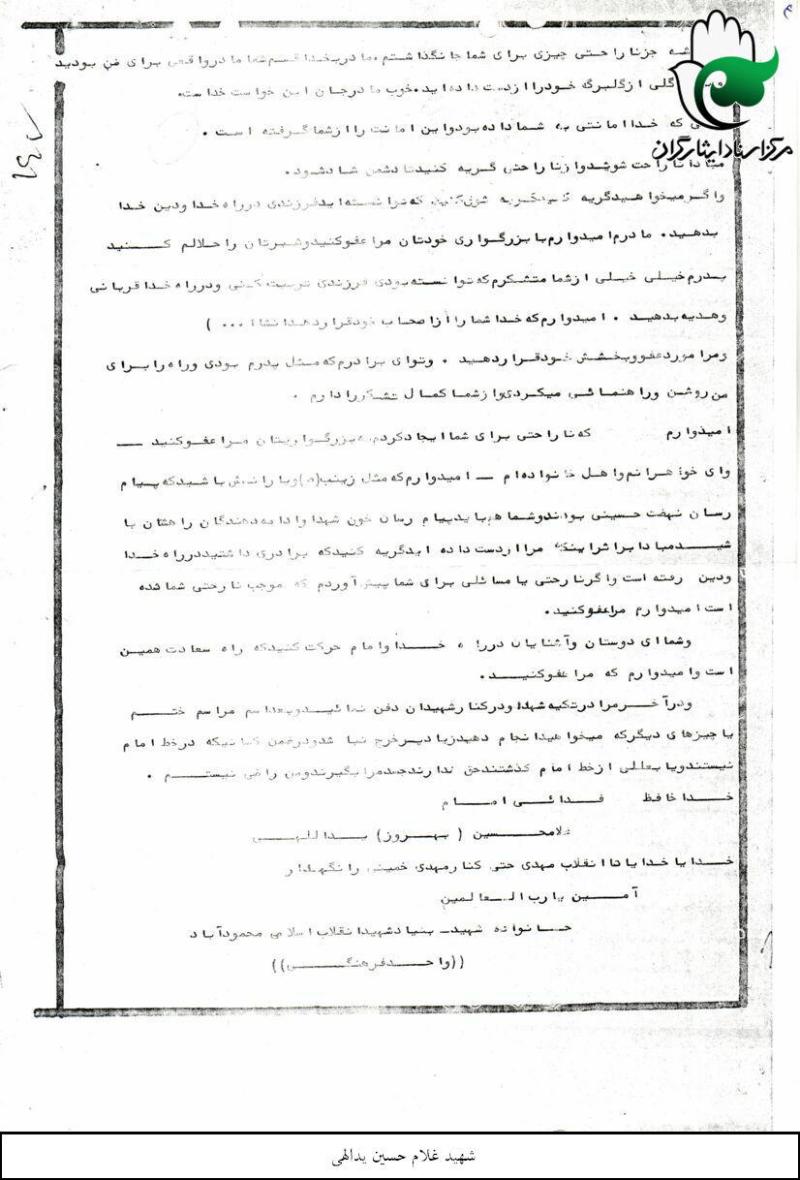 مرکز اسناد ایثارگران
جزنا راحتی چیزی برای شما جا نگذاشتم. مادر بخدا قسم شما مادر واقعی برای من بودید
گلی از گلبرگ خود را از دست داده اید. خوب مادر جان این خواست خداست.
که خدا امانتی به شما داده بود و این امانت را از شما گرفته است.
مبادا ناراحت شوید و از ناراحتی گریه کنید تا دشمن شاد شود.
واگر میخواهید گریه کنید گریه کنید که توانسته اید فرزندی در راه خدا و دین خدا
بدهید. مادرم امیدوارم با بزرگواری خودتان مرا عفو کنید و شیرتان را حلالم کنید
پدرم خیلی خیلی از شما متشکرم که توانسته بودی فرزندی تربیت کنی و در راه خدا قربانی
وهدیه بدهید. امیدوارم که خدا شما را از اصحاب خود قرار دهد انشاا...)
ومرا مورد عفو و بخشش خود قرار دهید. وتو ای برادرم که مثل پدرم بودی و راه را برای
من روشن و راهنمائی میکردی از شما کمال تشکر را دارم.
امیدوارم که ناراحتی برای شما ایجاد کردم به بزرگواریتان مرا عفو کنید
وای خواهرانم و اهل خانواده ام ــ امیدوارم که مثل زینب(س) و یارانش باشید که پیام
رسان نهضت حسینی بودند و شما هم باید پیام رسان خون شهدا و ادامه دهندگان راهشان با
شید مبادا برای اینکه مرا از دست داده اید گریه کنید که برادری داشتید در راه خدا
ودین رفته است واگر ناراحتی یا مسائلی برای شما پیش آوردم که موجب ناراحتی شما شده
است امیدوارم مرا عفو کنید.
وشما ای دوستان و آشنایان در راه خدا و امام حرکت کنید که راه سعادت همین
است وامیدوارم که مرا عفو کنید.
ودر آخر مرا در تکیه شهدا و در کنار شهیدان دفن نمائید و بعدا سم مراسم ختم
یا چیزهای دیگر که میخواهید انجام دهید زیاد پر خرج نباشد و در ضمن کسانیکه در خط امام
نیستند و یا بعللی از خط امام گذشتند حق ندارند جسد مرا بگیرند و من راضی نیستم.
خدا حافظ فدائی امام
غلامحسین (بهروز) یداللهی
خدایا خدایا تا انقلاب مهدی حتی کنار مهدی خمینی را نگهدار
آمین یا رب العالمین
خانواده شهید ــ بنیاد شهید انقلاب اسلامی محمودآباد
((واحد فرهنگی))
شهید غلام حسین یدالهی